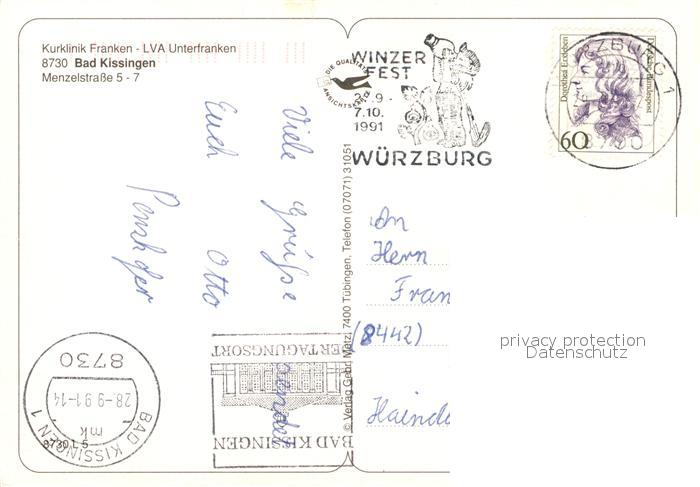 Kurklinik Franken - LVA Unterfranken
8730 Bad Kissingen
Menzelstraße 5 - 7
DIE QUALITÄTS
ANSICHTSKARTE
WINZER
FEST
7.10.
1991
WÜRZBURG
Dorothea Erxleben
Deutsche Bundespost
60
WÜRZBURG 1
8700
Viele Grüße
Euch Otto
© Verlag Gebr. Metz, 7400 Tübingen, Telefon (07071) 31051
An
Herrn
Fran
(8442)
Hainde
privacy protection
Datenschutz
BAD KISSINGEN
TAGUNGSORT
8730
28.-9.91-14
mk
BAD KISSINGEN 1
8730 L 5